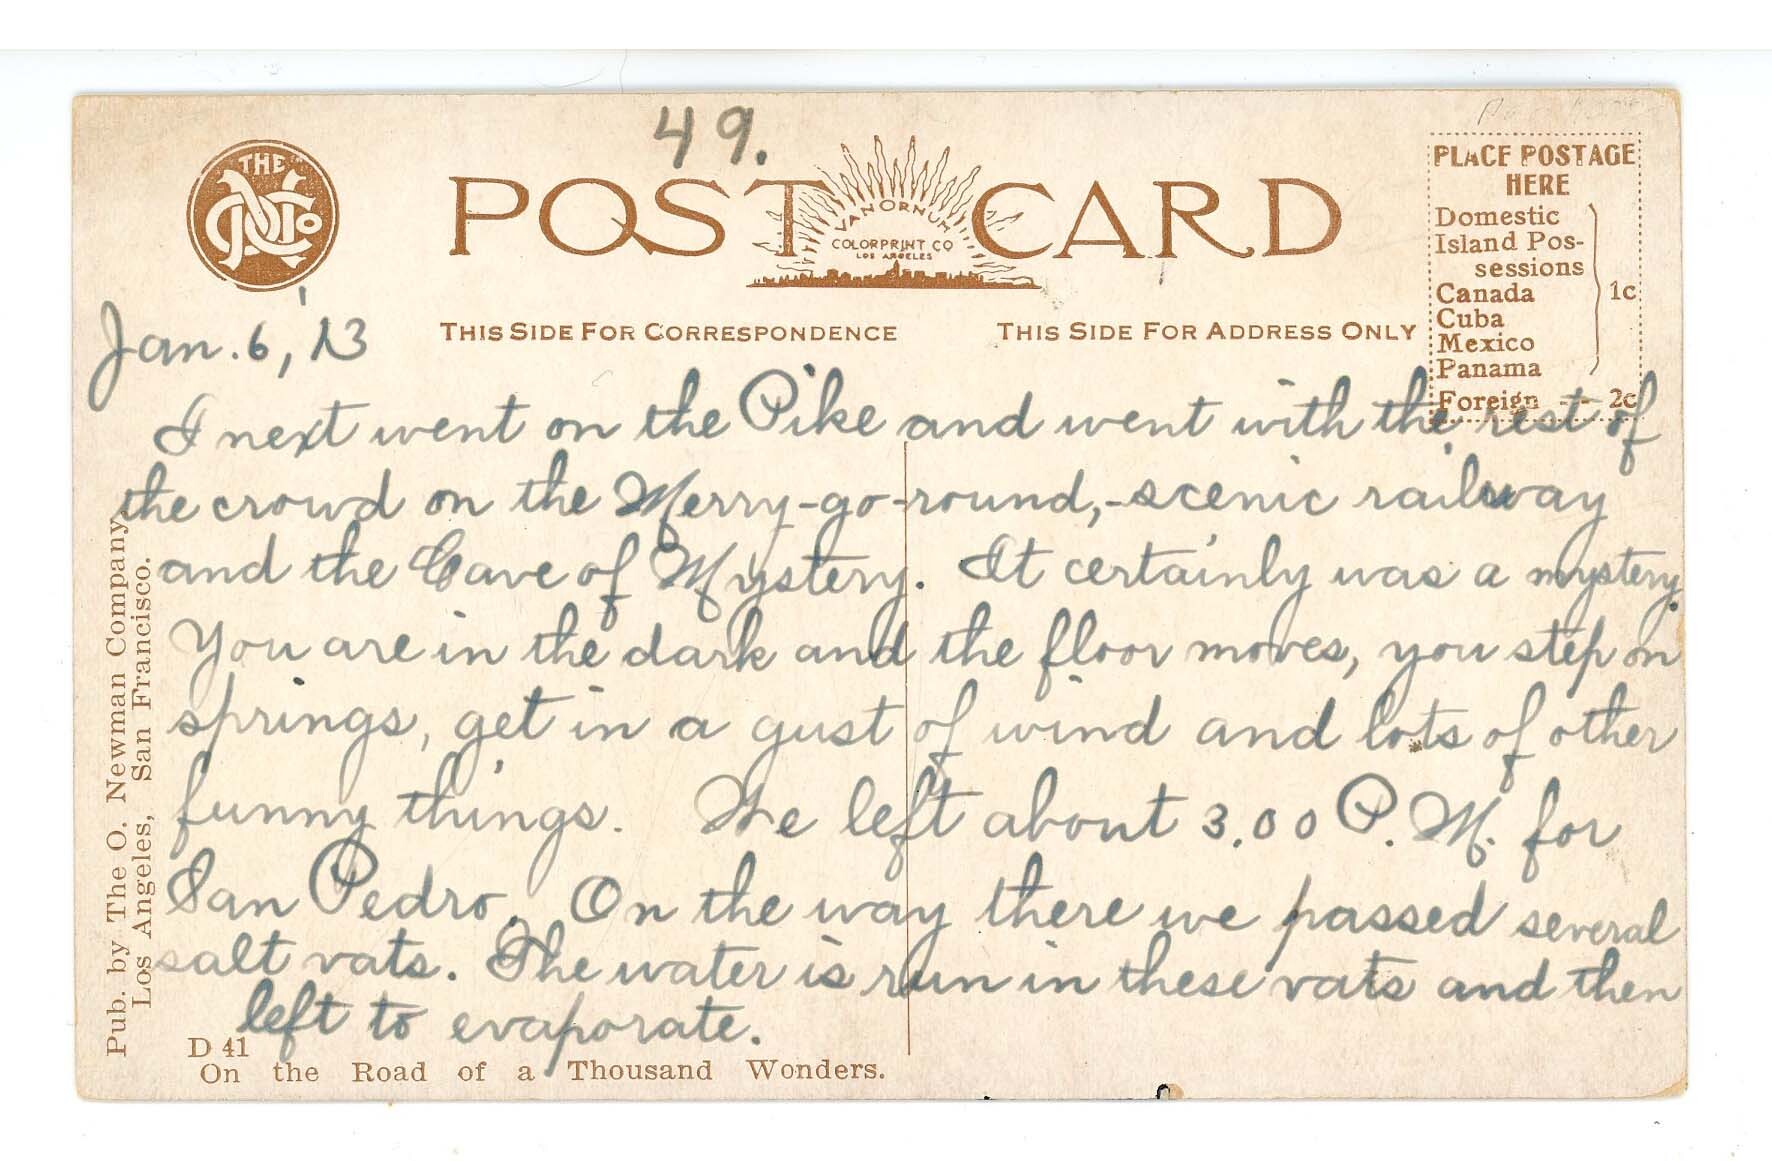 49.
THE
NCo
POST CARD
VAN ORNUM
COLORPRINT CO
LOS ANGELES
PLACE POSTAGE
HERE
Domestic
Island Pos-
sessions
Canada
Cuba
Mexico
Panama
1c
Foreign -- 2c
THIS SIDE FOR CORRESPONDENCE
THIS SIDE FOR ADDRESS ONLY
Jan. 6, '13
I next went on the Pike and went with the rest of
the crowd on the Merry-go-round,-scenic railway
and the Cave of Mystery. It certainly was a mystery.
You are in the dark and the floor moves, you step on
springs, get in a gust of wind and lots of other
funny things. We left about 3.00 P.M. for
San Pedro. On the way there we passed several
salt vats. The water is run in these vats and then
left to evaporate.
Pub. by The O. Newman Company,
Los Angeles, San Francisco.
D 41
On the Road of a Thousand Wonders.